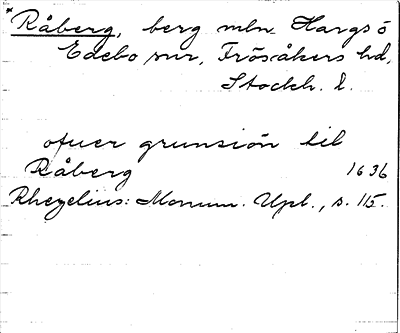 Råberg, berg mln Hargs o
Edebo snr, Frösåkers hd,
Stockh. l.
ofuer grunsiön til
Råberg 1636
Rhezelius: Monum. Upl., s. 115.